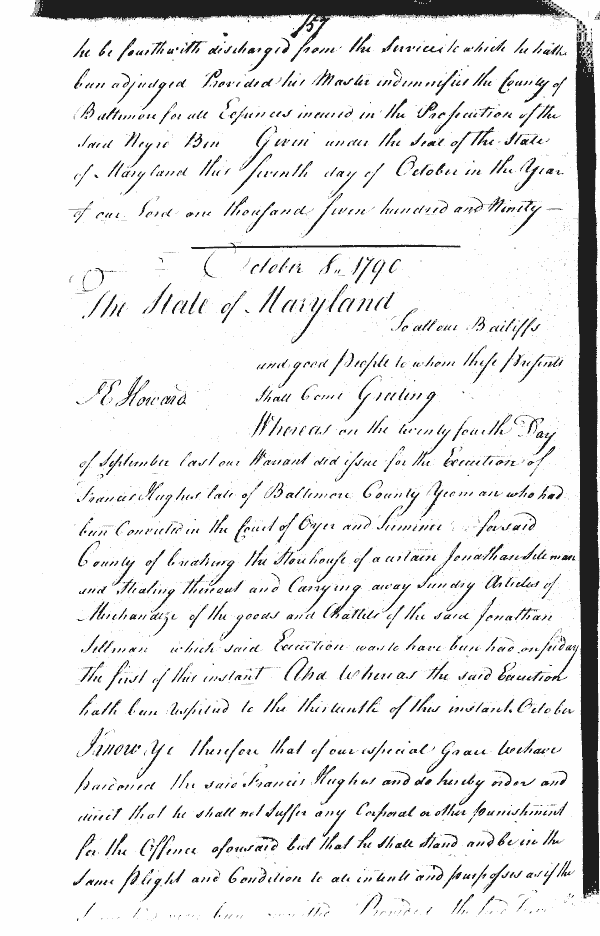 157
he be fourthwith discharged from the Service to which he hath
been adjudged Provided his Master indemnifies the County of
Baltimore for all Expences incured in the Prosecution of the
said Negro Ben Given under the seal of the State
of Maryland this seventh day of October in the Year
of our Lord one thousand seven hundred and Ninety —
October 8th 1790
The State of Maryland
To all our Bailiffs
and good People to whom these presents
J E Howard shall Come Greeting
Whereas on the twenty fourth Day
of September last our Warrant did issue for the Execution of
Francis Hughes late of Baltimore County Yeoman who had
been Convicted in the Court of Oyer and Terminer for said
County of breaking the Storehouse of a certain Jonathan Sellman
and Stealing thereout and Carrying away sundry Articles of
Merchandize of the goods and Chattels of the said Jonathan
Sellman which said Execution was to have been had on friday
the first of this instant And whereas the said Execution
hath been respited to the thirteenth of this instant October
Know Ye therefore that of our especial Grace We have
pardoned the said Francis Hughes and do hereby order and
direct that he shall not suffer any Corporal or other punishment
for the Offence aforesaid but that he shall stand and be in the
same plight and Condition to all intents and purposes as if the
been Provided the said